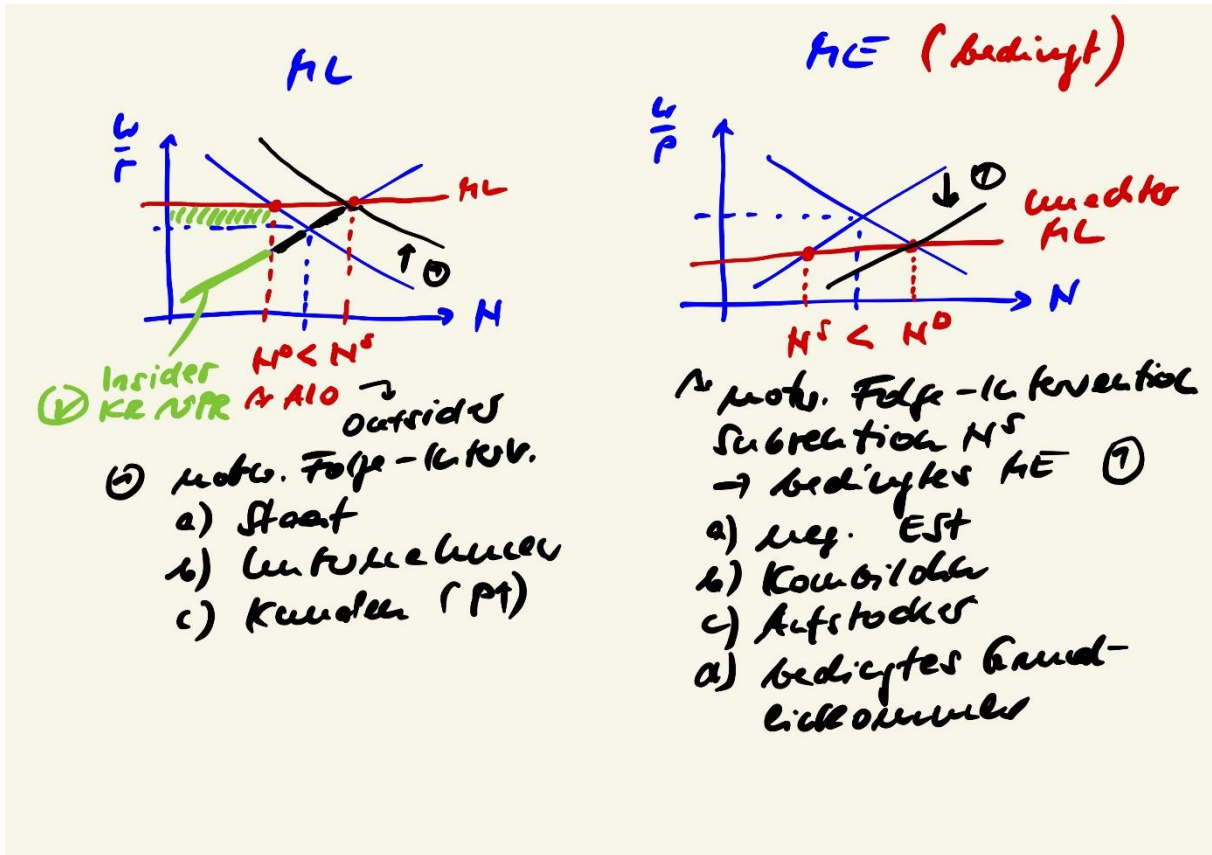 ML
W/P
ML
N
Insider
KR
N^D < N^S
ALO
→ Outsider
motw. Folge-Interv.
a) Staat
b) Unternehmer
c) Kunden (P↑)
ME (bedingt)
W/P
↓ ①
unechter
ML
N
N^S < N^D
motw. Folge-Intervention
Subvention N^S
→ bedingtes ME ①
a) neg. ESt
b) Kombilohn
c) Aufstocker
d) bedingtes Grund-
einkommen